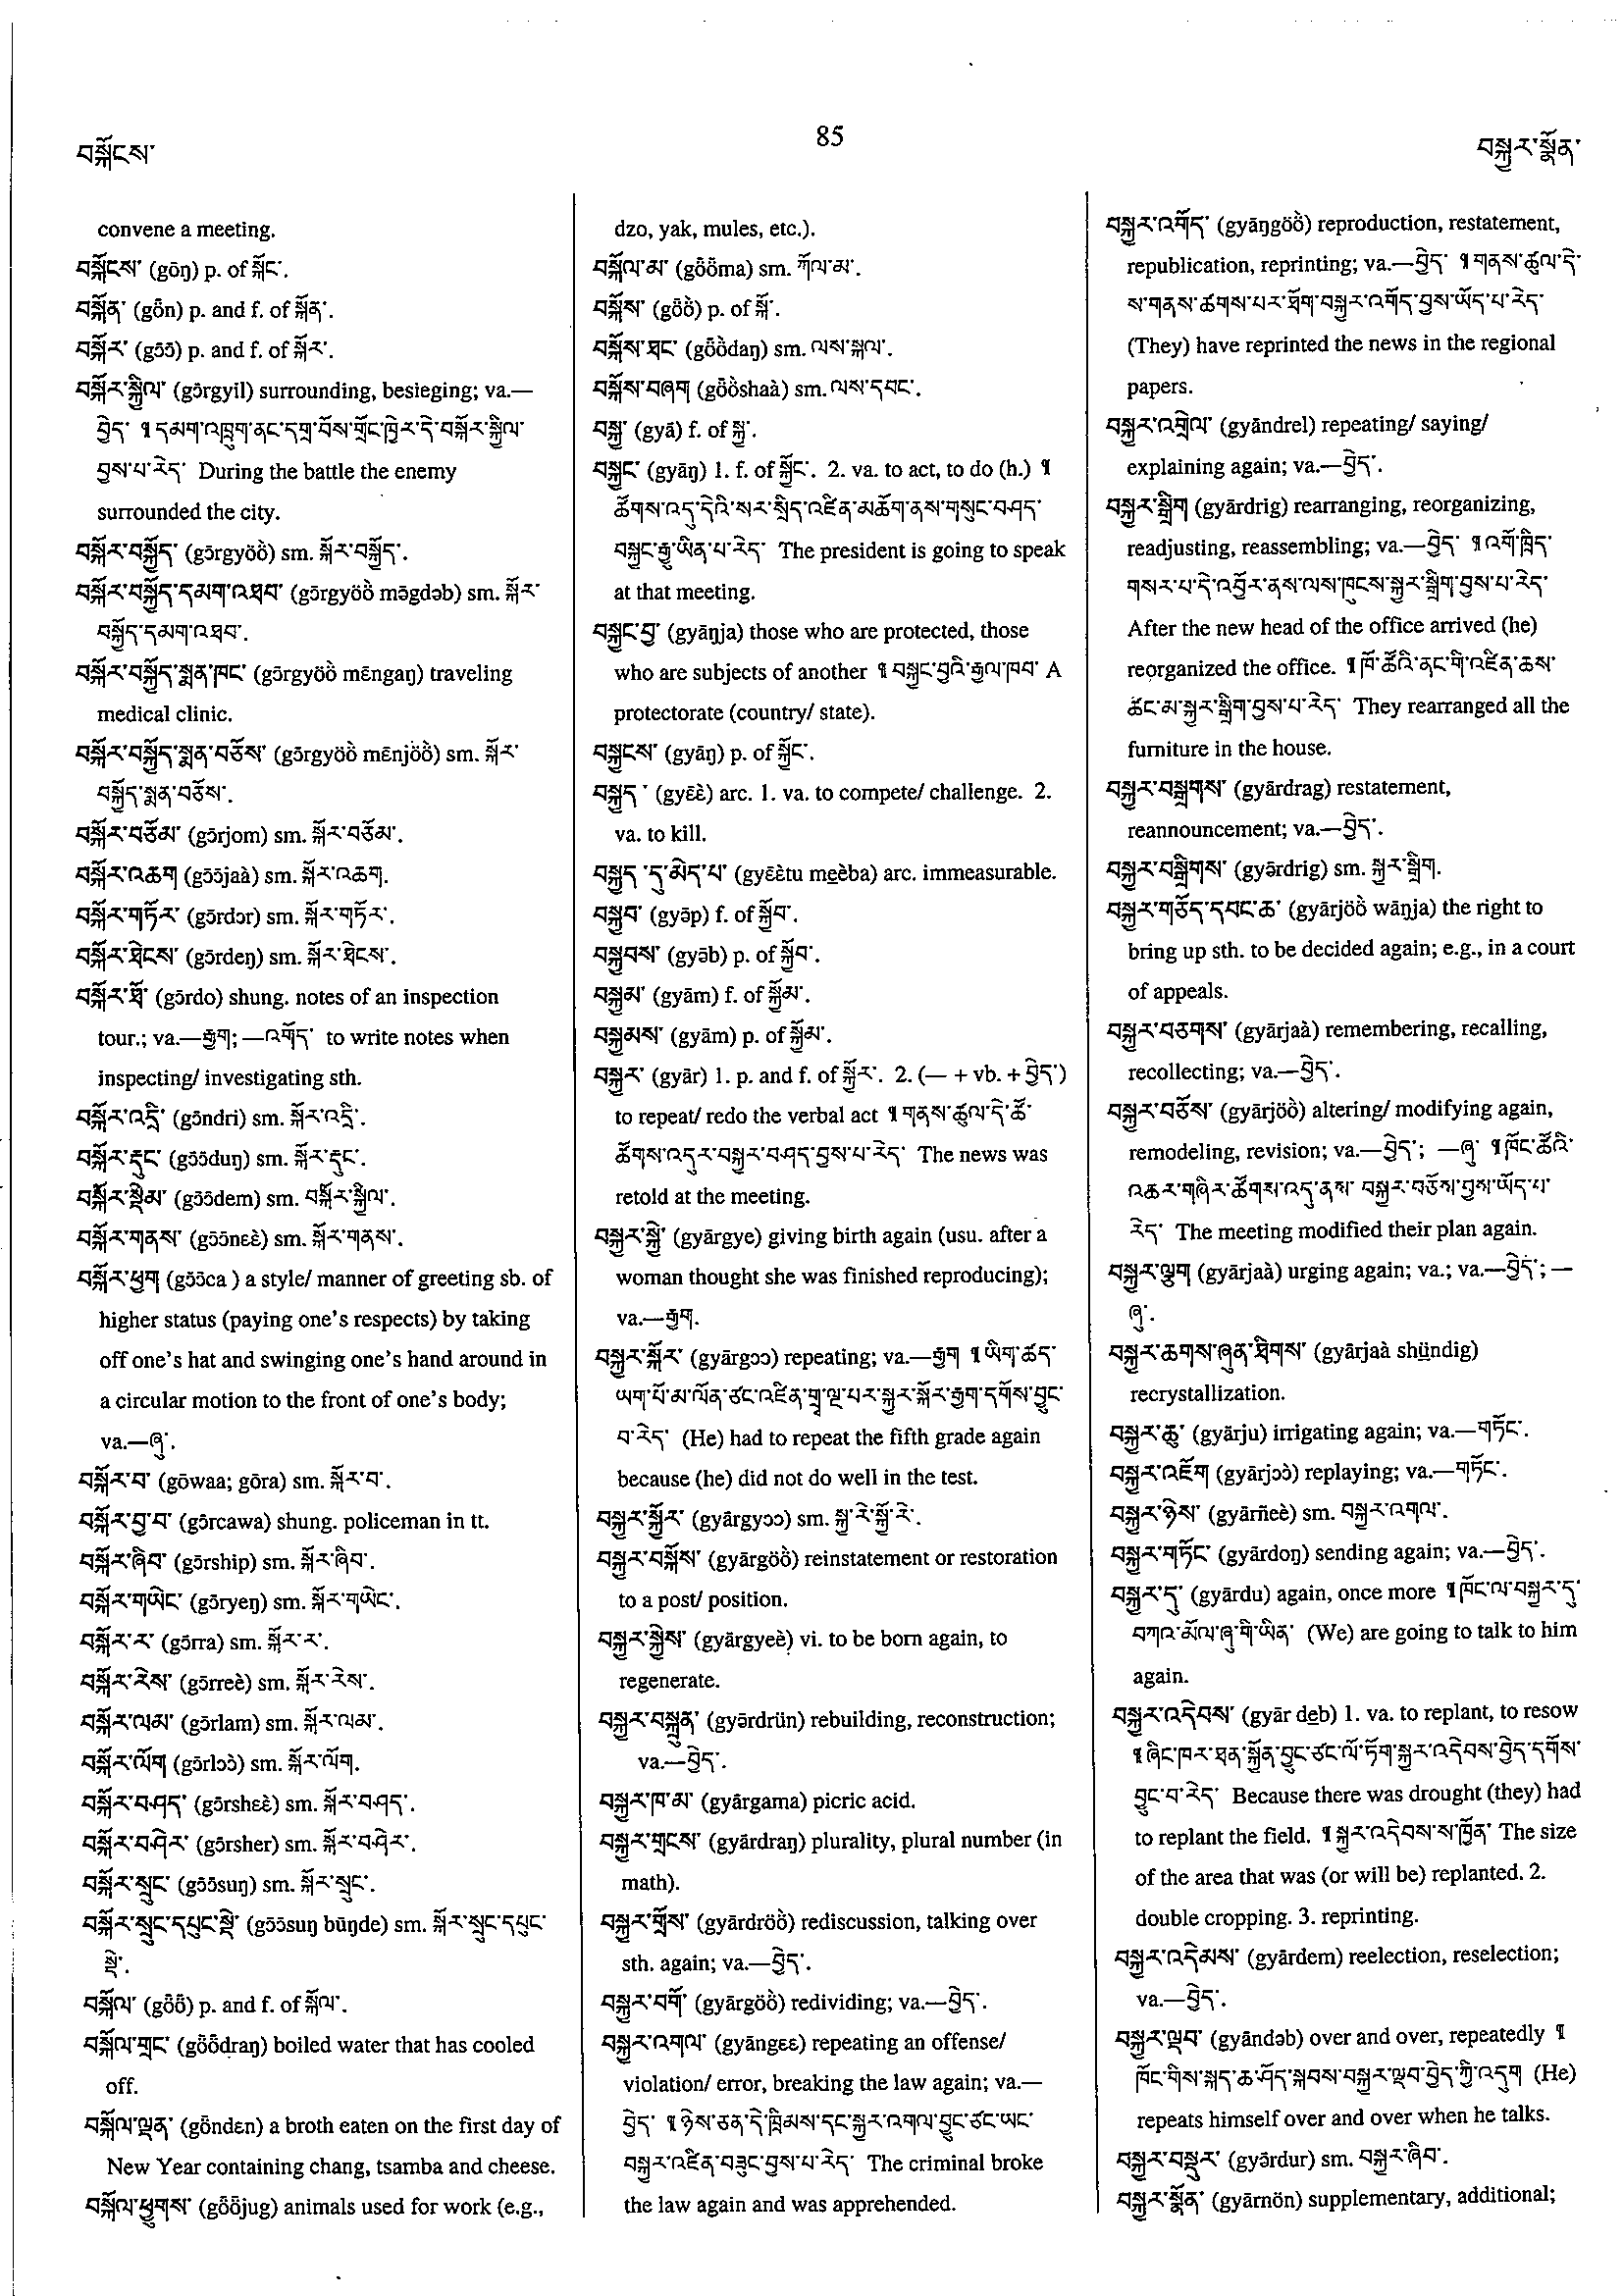 85
བསྐོངས་
བསྐྱར་སྣོན་
convene a meeting.
བསྐོངས་ (gōŋ) p. of སྐོང་.
བསྐོན་ (gȫn) p. and f. of སྐོན་.
བསྐོར་ (gɔ̄ɔ̄) p. and f. of སྐོར་.
བསྐོར་སྐྱིལ་ (gɔ̄rgyil) surrounding, besieging; va.—
བྱེད་ ¶ དམག་འཁྲུག་ནང་དགྲ་བོས་གྲོང་ཁྱེར་དེ་བསྐོར་སྐྱིལ་
བྱས་པ་རེད་ During the battle the enemy
surrounded the city.
བསྐོར་བསྐྱོད་ (gɔ̄rgyöö̀) sm. སྐོར་བསྐྱོད་.
བསྐོར་བསྐྱོད་དམག་འཐབ་ (gɔ̄rgyöö̀ mə̄gdəb) sm. སྐོར་
བསྐྱོད་དམག་འཐབ་.
བསྐོར་བསྐྱོད་སྨན་ཁང་ (gɔ̄rgyöö̀ mɛ̄ngaŋ) traveling
medical clinic.
བསྐོར་བསྐྱོད་སྨན་བཅོས་ (gɔ̄rgyöö̀ mɛ̄njöö̀) sm. སྐོར་
བསྐྱོད་སྨན་བཅོས་.
བསྐོར་བཅོམ་ (gɔ̄rjom) sm. སྐོར་བཅོམ་.
བསྐོར་འཆག (gɔ̄ɔ̄jaà) sm. སྐོར་འཆག.
བསྐོར་གཏོར་ (gɔ̄rdɔr) sm. སྐོར་གཏོར་.
བསྐོར་ཐེངས་ (gɔ̄rdeŋ) sm. སྐོར་ཐེངས་.
བསྐོར་ཐོ་ (gɔ̄rdo) shung. notes of an inspection
tour.; va.—རྒྱག; —འགོད་ to write notes when
inspecting/ investigating sth.
བསྐོར་འདྲི་ (gɔ̄ndri) sm. སྐོར་འདྲི་.
བསྐོར་རྡུང་ (gɔ̄ɔ̄duŋ) sm. སྐོར་རྡུང་.
བསྐོར་སྡེམ་ (gɔ̄ɔ̄dem) sm. བསྐོར་སྐྱིལ་.
བསྐོར་གནས་ (gɔ̄ɔ̄nɛɛ̀) sm. སྐོར་གནས་.
བསྐོར་ཕྱག (gɔ̄ɔ̄ca ) a style/ manner of greeting sb. of
higher status (paying one's respects) by taking
off one's hat and swinging one's hand around in
a circular motion to the front of one's body;
va.—ཞུ་.
བསྐོར་བ་ (gōwaa; gōra) sm. སྐོར་བ་.
བསྐོར་བྱ་བ་ (gɔ̄rcawa) shung. policeman in tt.
བསྐོར་ཞིབ་ (gɔ̄rship) sm. སྐོར་ཞིབ་.
བསྐོར་གཡེང་ (gɔ̄ryeŋ) sm. སྐོར་གཡེང་.
བསྐོར་ར་ (gɔ̄rra) sm. སྐོར་ར་.
བསྐོར་རེས་ (gɔ̄rreè) sm. སྐོར་རེས་.
བསྐོར་ལམ་ (gɔ̄rlam) sm. སྐོར་ལམ་.
བསྐོར་ལོག (gɔ̄rlɔɔ̀) sm. སྐོར་ལོག.
བསྐོར་བཤད་ (gɔ̄rshɛɛ̀) sm. སྐོར་བཤད་.
བསྐོར་བཤེར་ (gɔ̄rsher) sm. སྐོར་བཤེར་.
བསྐོར་སྲུང་ (gɔ̄ɔ̄suŋ) sm. སྐོར་སྲུང་.
བསྐོར་སྲུང་དཔུང་སྡེ་ (gɔ̄ɔ̄suŋ būŋde) sm. སྐོར་སྲུང་དཔུང་
སྡེ་.
བསྐོལ་ (gȫȫ) p. and f. of སྐོལ་.
བསྐོལ་གྲང་ (gȫȫdraŋ) boiled water that has cooled
off.
བསྐོལ་ལྡན་ (gȫndɛn) a broth eaten on the first day of
New Year containing chang, tsamba and cheese.
བསྐོལ་ཕྱུགས་ (gȫȫjug) animals used for work (e.g.,
dzo, yak, mules, etc.).
བསྐོལ་མ་ (gȫȫma) sm. ཀོལ་མ་.
བསྐོས་ (gȫö̀) p. of སྐོ་.
བསྐོས་ཐང་ (gȫö̀daŋ) sm. ལས་སྐལ་.
བསྐོས་བཞག (gȫö̀shaà) sm. ལས་དབང་.
བསྐྱ་ (gyā) f. of སྐྱ་.
བསྐྱང་ (gyāŋ) 1. f. of སྐྱོང་. 2. va. to act, to do (h.) ¶
ཚོགས་འདུ་དེའི་སར་སྲིད་འཛིན་མཆོག་ནས་གསུང་བཤད་
བསྐྱང་རྒྱུ་ཡིན་པ་རེད་ The president is going to speak
at that meeting.
བསྐྱང་བྱ་ (gyāŋja) those who are protected, those
who are subjects of another ¶ བསྐྱང་བྱའི་རྒྱལ་ཁབ་ A
protectorate (country/ state).
བསྐྱངས་ (gyāŋ) p. of སྐྱོང་.
བསྐྱད་ (gyɛ̄ɛ̀) arc. 1. va. to compete/ challenge. 2.
va. to kill.
བསྐྱད་དུ་མེད་པ་ (gyɛ̄ɛ̀tu me̱èba) arc. immeasurable.
བསྐྱབ་ (gyə̄p) f. of སྐྱོབ་.
བསྐྱབས་ (gyə̄b) p. of སྐྱོབ་.
བསྐྱམ་ (gyām) f. of སྐྱོམ་.
བསྐྱམས་ (gyām) p. of སྐྱོམ་.
བསྐྱར་ (gyār) 1. p. and f. of སྐྱོར་. 2. (— + vb. + བྱེད་)
to repeat/ redo the verbal act ¶ གནས་ཚུལ་དེ་ཚོ་
ཚོགས་འདུར་བསྐྱར་བཤད་བྱས་པ་རེད་ The news was
retold at the meeting.
བསྐྱར་སྐྱེ་ (gyārgye) giving birth again (usu. after a
woman thought she was finished reproducing);
va.—རྒྱག.
བསྐྱར་སྐོར་ (gyārgɔɔ) repeating; va.—རྒྱག ¶ ཡིག་ཚད་
ཡག་པོ་མ་ལོན་ཙང་འཛིན་གྲྭ་ལྔ་པར་སྐྱར་སྐོར་རྒྱག་དགོས་བྱུང་
བ་རེད་ (He) had to repeat the fifth grade again
because (he) did not do well in the test.
བསྐྱར་སྐྱོར་ (gyārgyɔɔ) sm. སྐྱ་རེ་སྐྱོ་རེ་.
བསྐྱར་བསྐོས་ (gyārgöö̀) reinstatement or restoration
to a post/ position.
བསྐྱར་སྐྱེས་ (gyārgyeè) vi. to be born again, to
regenerate.
བསྐྱར་བསྐྲུན་ (gyə̄rdrün) rebuilding, reconstruction;
va.—བྱེད་.
བསྐྱར་ཁ་མ་ (gyārgama) picric acid.
བསྐྱར་གྲངས་ (gyārdraŋ) plurality, plural number (in
math).
བསྐྱར་གྲོས་ (gyārdröö̀) rediscussion, talking over
sth. again; va.—བྱེད་.
བསྐྱར་བགོ་ (gyārgöö̀) redividing; va.—བྱེད་.
བསྐྱར་འགལ་ (gyāngɛɛ) repeating an offense/
violation/ error, breaking the law again; va.—
བྱེད་ ¶ ཉེས་ཅན་དེ་ཁྲིམས་དང་སྐྱར་འགལ་བྱུང་ཙང་ཡང་
བསྐྱར་འཛིན་བཟུང་བྱས་པ་རེད་ The criminal broke
the law again and was apprehended.
བསྐྱར་འགོད་ (gyāŋgöö̀) reproduction, restatement,
republication, reprinting; va.—བྱེད་ ¶ གནས་ཚུལ་དེ་
ས་གནས་ཚགས་པར་ཐོག་བསྐྱར་འགོད་བྱས་ཡོད་པ་རེད་
(They) have reprinted the news in the regional
papers.
བསྐྱར་འགྲེལ་ (gyāndrel) repeating/ saying/
explaining again; va.—བྱེད་.
བསྐྱར་སྒྲིག (gyārdrig) rearranging, reorganizing,
readjusting, reassembling; va.—བྱེད་ ¶ འགོ་ཁྲིད་
གསར་པ་དེ་འབྱོར་ནས་ལས་ཁུངས་སྐྱར་སྒྲིག་བྱས་པ་རེད་
After the new head of the office arrived (he)
reorganized the office. ¶ ཁོ་ཚོའི་ནང་གི་འཛིན་ཆས་
ཚང་མ་སྐྱར་སྒྲིག་བྱས་པ་རེད་ They rearranged all the
furniture in the house.
བསྐྱར་བསྒྲགས་ (gyārdrag) restatement,
reannouncement; va.—བྱེད་.
བསྐྱར་བསྒྲིགས་ (gyə̄rdrig) sm. སྐྱར་སྒྲིག.
བསྐྱར་གཅོད་དབང་ཆ་ (gyārjöö̀ wāŋja) the right to
bring up sth. to be decided again; e.g., in a court
of appeals.
བསྐྱར་བཅགས་ (gyārjaà) remembering, recalling,
recollecting; va.—བྱེད་.
བསྐྱར་བཅོས་ (gyārjöö̀) altering/ modifying again,
remodeling, revision; va.—བྱེད་; —ཞུ་ ¶ ཁོང་ཚོའི་
འཆར་གཞིར་ཚོགས་འདུ་ནས་ བསྐྱར་བཅོས་བྱས་ཡོད་པ་
རེད་ The meeting modified their plan again.
བསྐྱར་ལྕག (gyārjaà) urging again; va.; va.—བྱེད་; —
ཞུ་.
བསྐྱར་ཆགས་ཞུན་ཐིགས་ (gyārjaà shü̱ndig)
recrystallization.
བསྐྱར་ཆུ་ (gyārju) irrigating again; va.—གཏོང་.
བསྐྱར་འཇོག (gyārjɔɔ̀) replaying; va.—གཏོང་.
བསྐྱར་ཉེས་ (gyārñeè) sm. བསྐྱར་འགལ་.
བསྐྱར་གཏོང་ (gyārdoŋ) sending again; va.—བྱེད་.
བསྐྱར་དུ་ (gyārdu) again, once more ¶ ཁོང་ལ་བསྐྱར་དུ་
བཀའ་མོལ་ཞུ་གི་ཡིན་ (We) are going to talk to him
again.
བསྐྱར་འདེབས་ (gyār de̱b) 1. va. to replant, to resow
¶ ཞིང་ཁར་ཐན་སྐྱོན་བྱུང་ཙང་ལོ་ཏོག་སྐྱར་འདེབས་བྱེད་དགོས་
བྱུང་བ་རེད་ Because there was drought (they) had
to replant the field. ¶ སྐྱར་འདེབས་ས་ཁྱོན་ The size
of the area that was (or will be) replanted. 2.
double cropping. 3. reprinting.
བསྐྱར་འདེམས་ (gyārdem) reelection, reselection;
va.—བྱེད་.
བསྐྱར་ལྡབ་ (gyāndəb) over and over, repeatedly ¶
ཁོང་གིས་སྐད་ཆ་ཤོད་སྐབས་བསྐྱར་ལྡབ་བྱེད་ཀྱི་འདུག (He)
repeats himself over and over when he talks.
བསྐྱར་བསྡུར་ (gyə̄rdur) sm. བསྐྱར་ཞིབ་.
བསྐྱར་སྣོན་ (gyārnön) supplementary, additional;